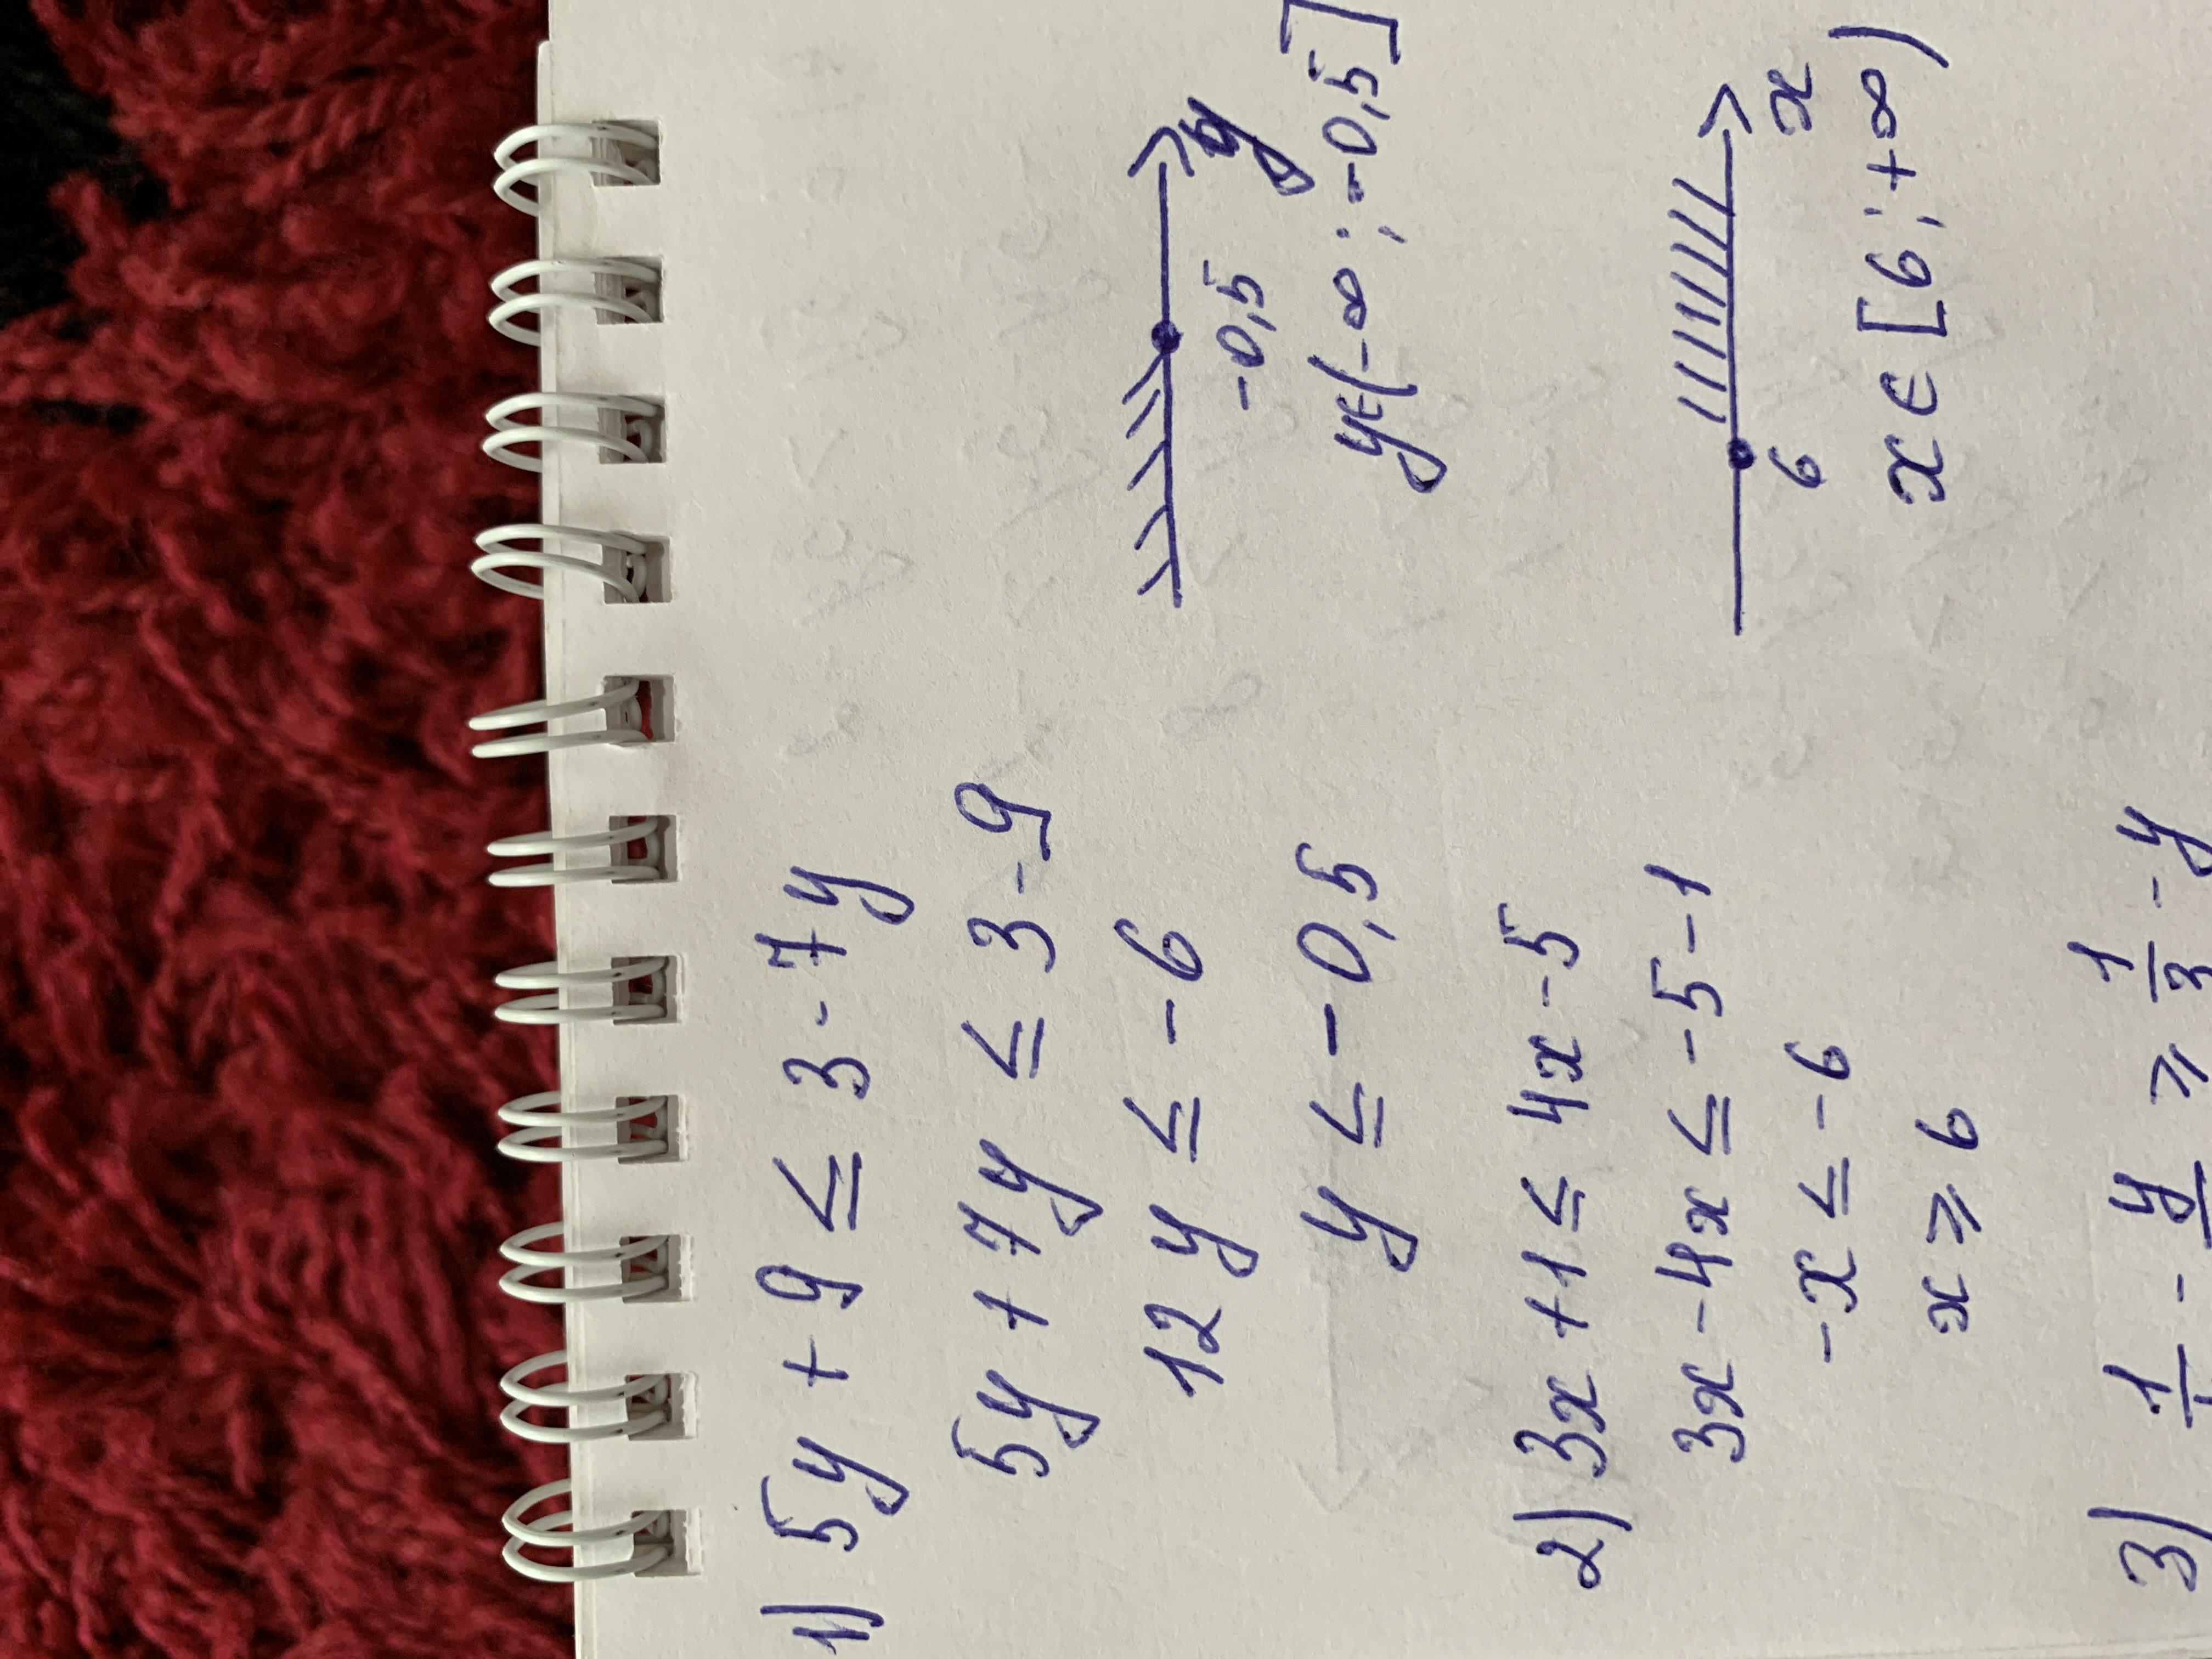 1) 5y + 9 ≤ 3 - 7y
5y + 7y ≤ 3 - 9
12y ≤ -6
y ≤ -0,5
-0,5 y
y∈(-∞; -0,5]
2) 3x + 1 ≤ 4x - 5
3x - 4x ≤ -5 - 1
-x ≤ -6
x ⩾ 6
6 x
x ∈ [6; +∞)
3) 1 - y ⩾ 1/3 - y